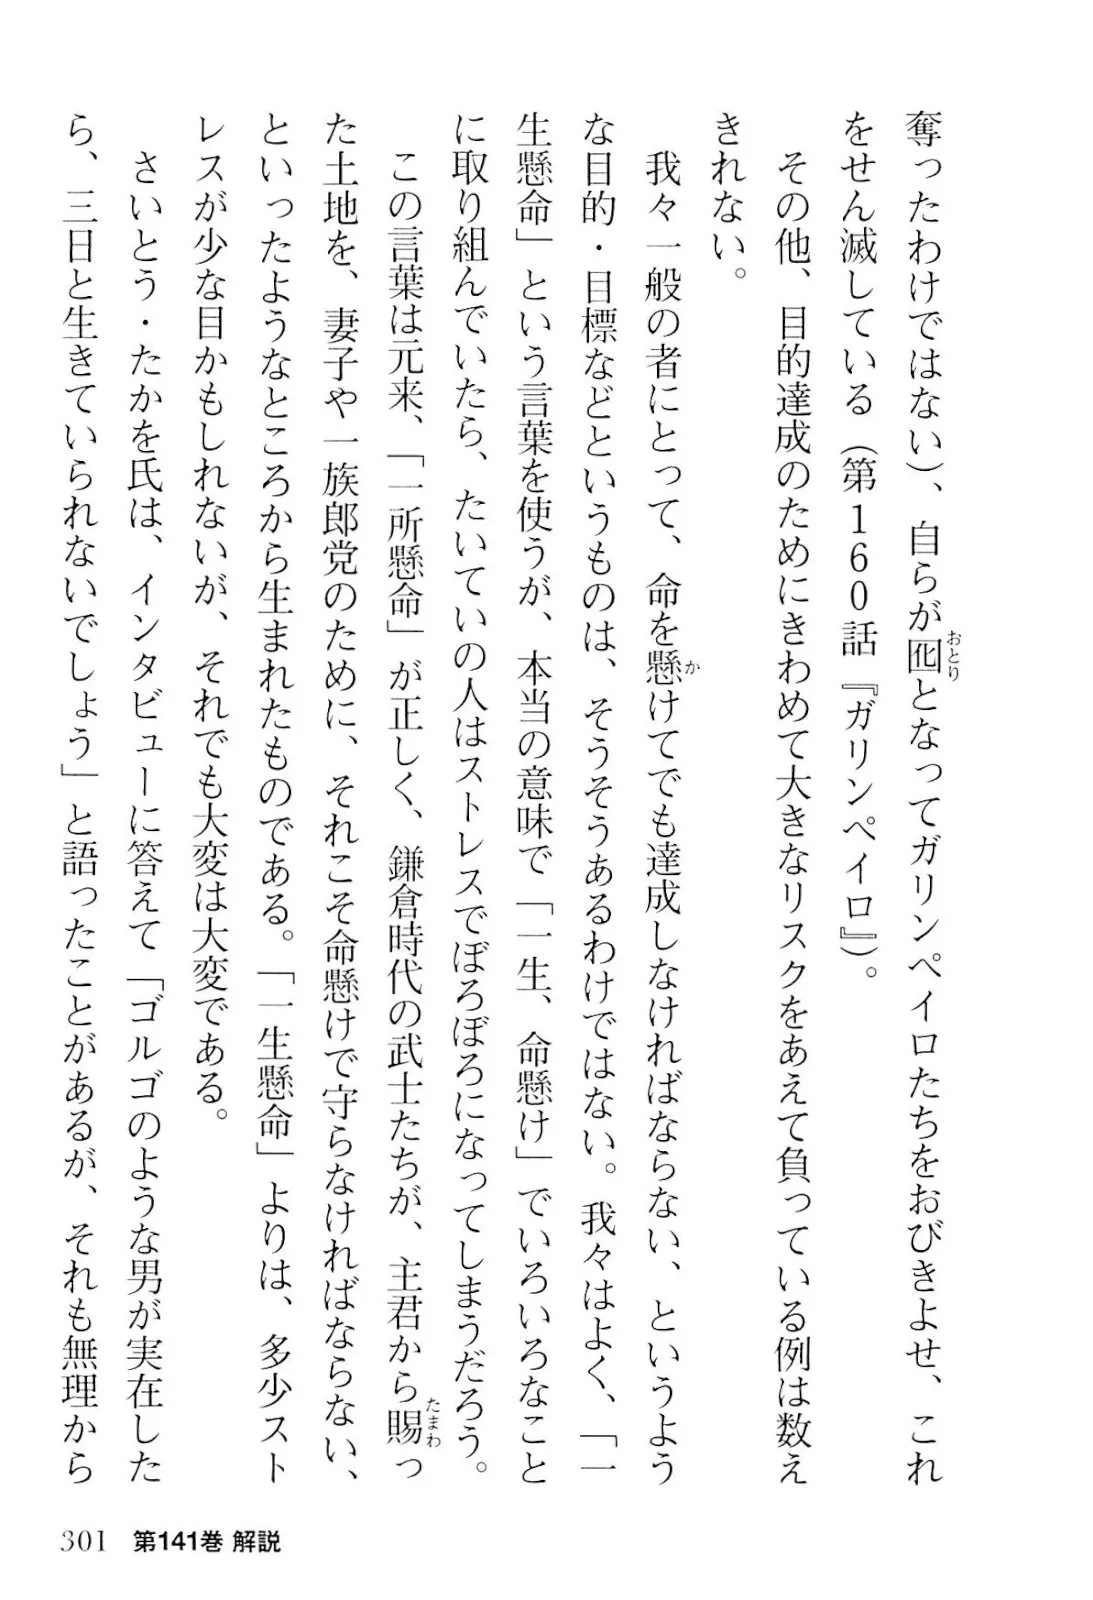 奪ったわけではない）、自らが囮となってガリンペイロたちをおびきよせ、これ
をせん滅している（第160話『ガリンペイロ』）。
その他、目的達成のためにきわめて大きなリスクをあえて負っている例は数え
きれない。
我々一般の者にとって、命を懸けてでも達成しなければならない、というよう
な目的・目標などというものは、そうそうあるわけではない。我々はよく、「一
生懸命」という言葉を使うが、本当の意味で「一生、命懸け」でいろいろなこと
に取り組んでいたら、たいていの人はストレスでぼろぼろになってしまうだろう。
この言葉は元来、「一所懸命」が正しく、鎌倉時代の武士たちが、主君から賜っ
た土地を、妻子や一族郎党のために、それこそ命懸けで守らなければならない、
といったようなところから生まれたものである。「一生懸命」よりは、多少スト
レスが少な目かもしれないが、それでも大変は大変である。
さいとう・たかを氏は、インタビューに答えて「ゴルゴのような男が実在した
ら、三日と生きていられないでしょう」と語ったことがあるが、それも無理から
おとり
か
たまわ
301 第141巻 解説